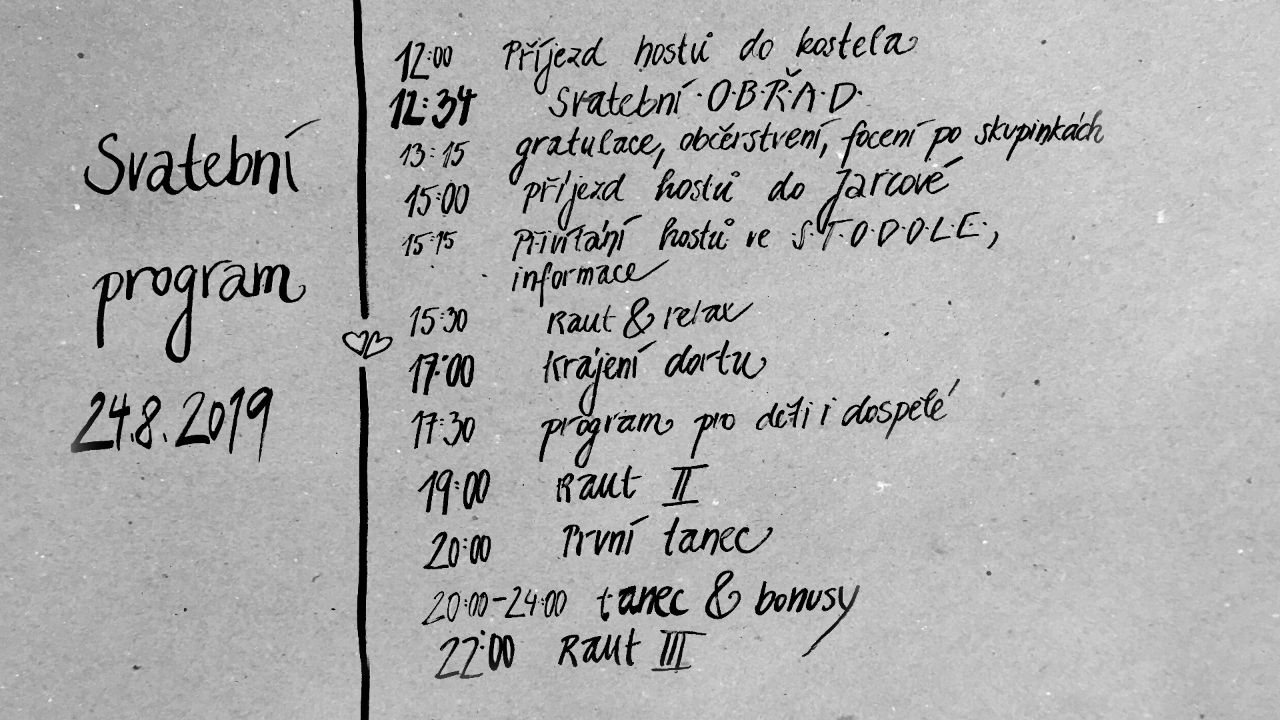 Svatební
program
24.8.2019
12:00 Příjezd hostů do kostela
12:34 Svatební ·O·B·Ř·A·D·
13:15 gratulace, občerstvení, focení po skupinkách
15:00 příjezd hostů do Jarcové
15:15 Přivítání hostů ve S·T·O·D·O·L·E·,
informace
15:30 Raut & relax
17:00 krájení dortu
17:30 program pro děti i dospělé
19:00 Raut II
20:00 První tanec
20:00-24:00 tanec & bonusy
22:00 Raut III